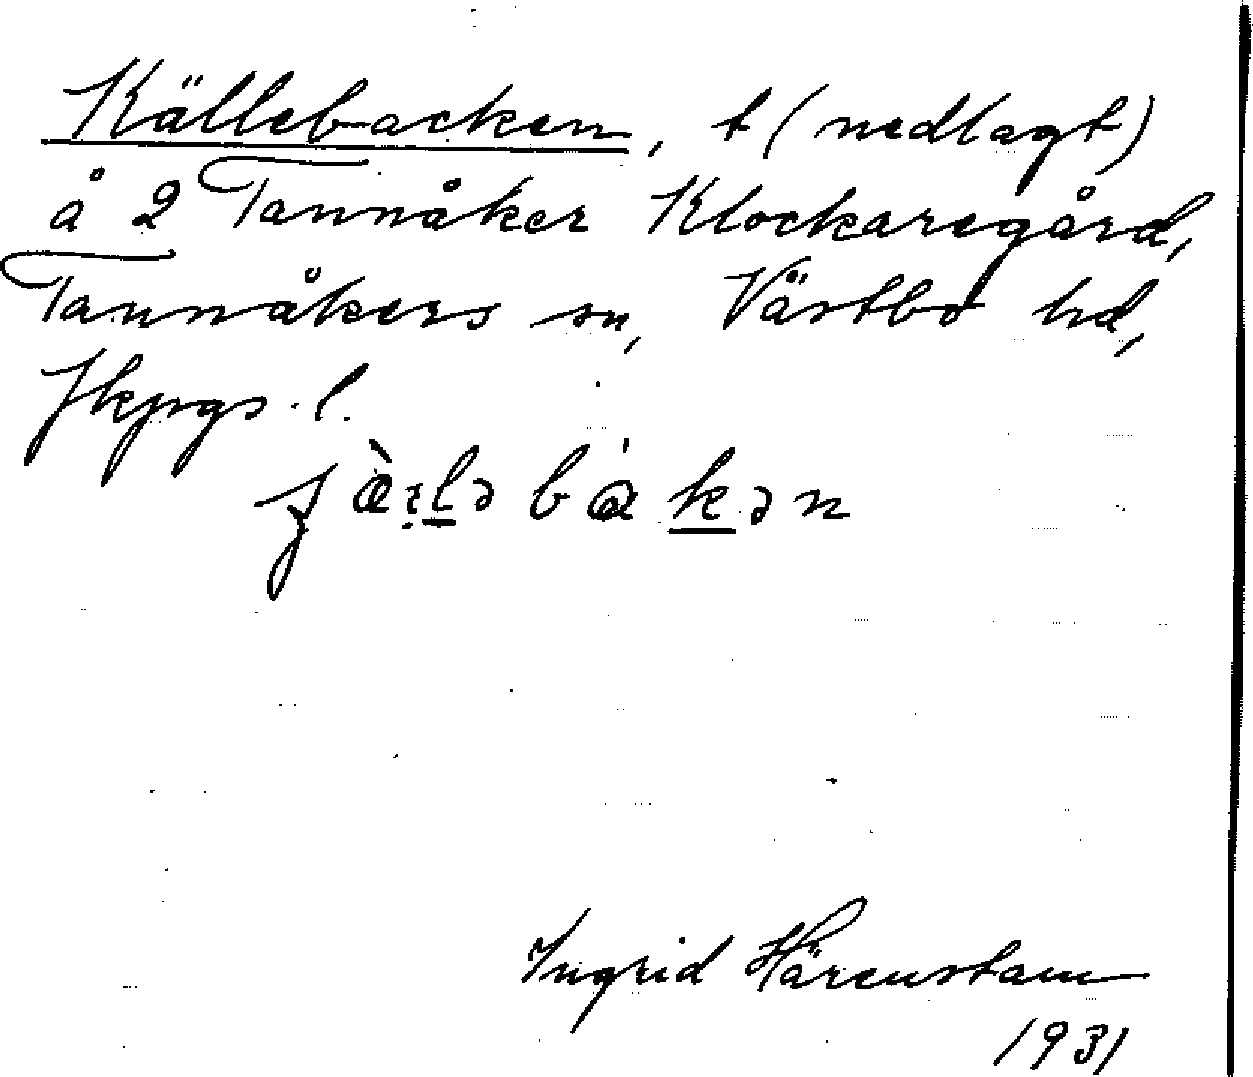 Källebacken, t (nedlagt)
å 2 Tannåker Klockaregård,
Tannåkers sn, Västbo hd,
Jkpgs. l.
Ingrid Härenstam
1931